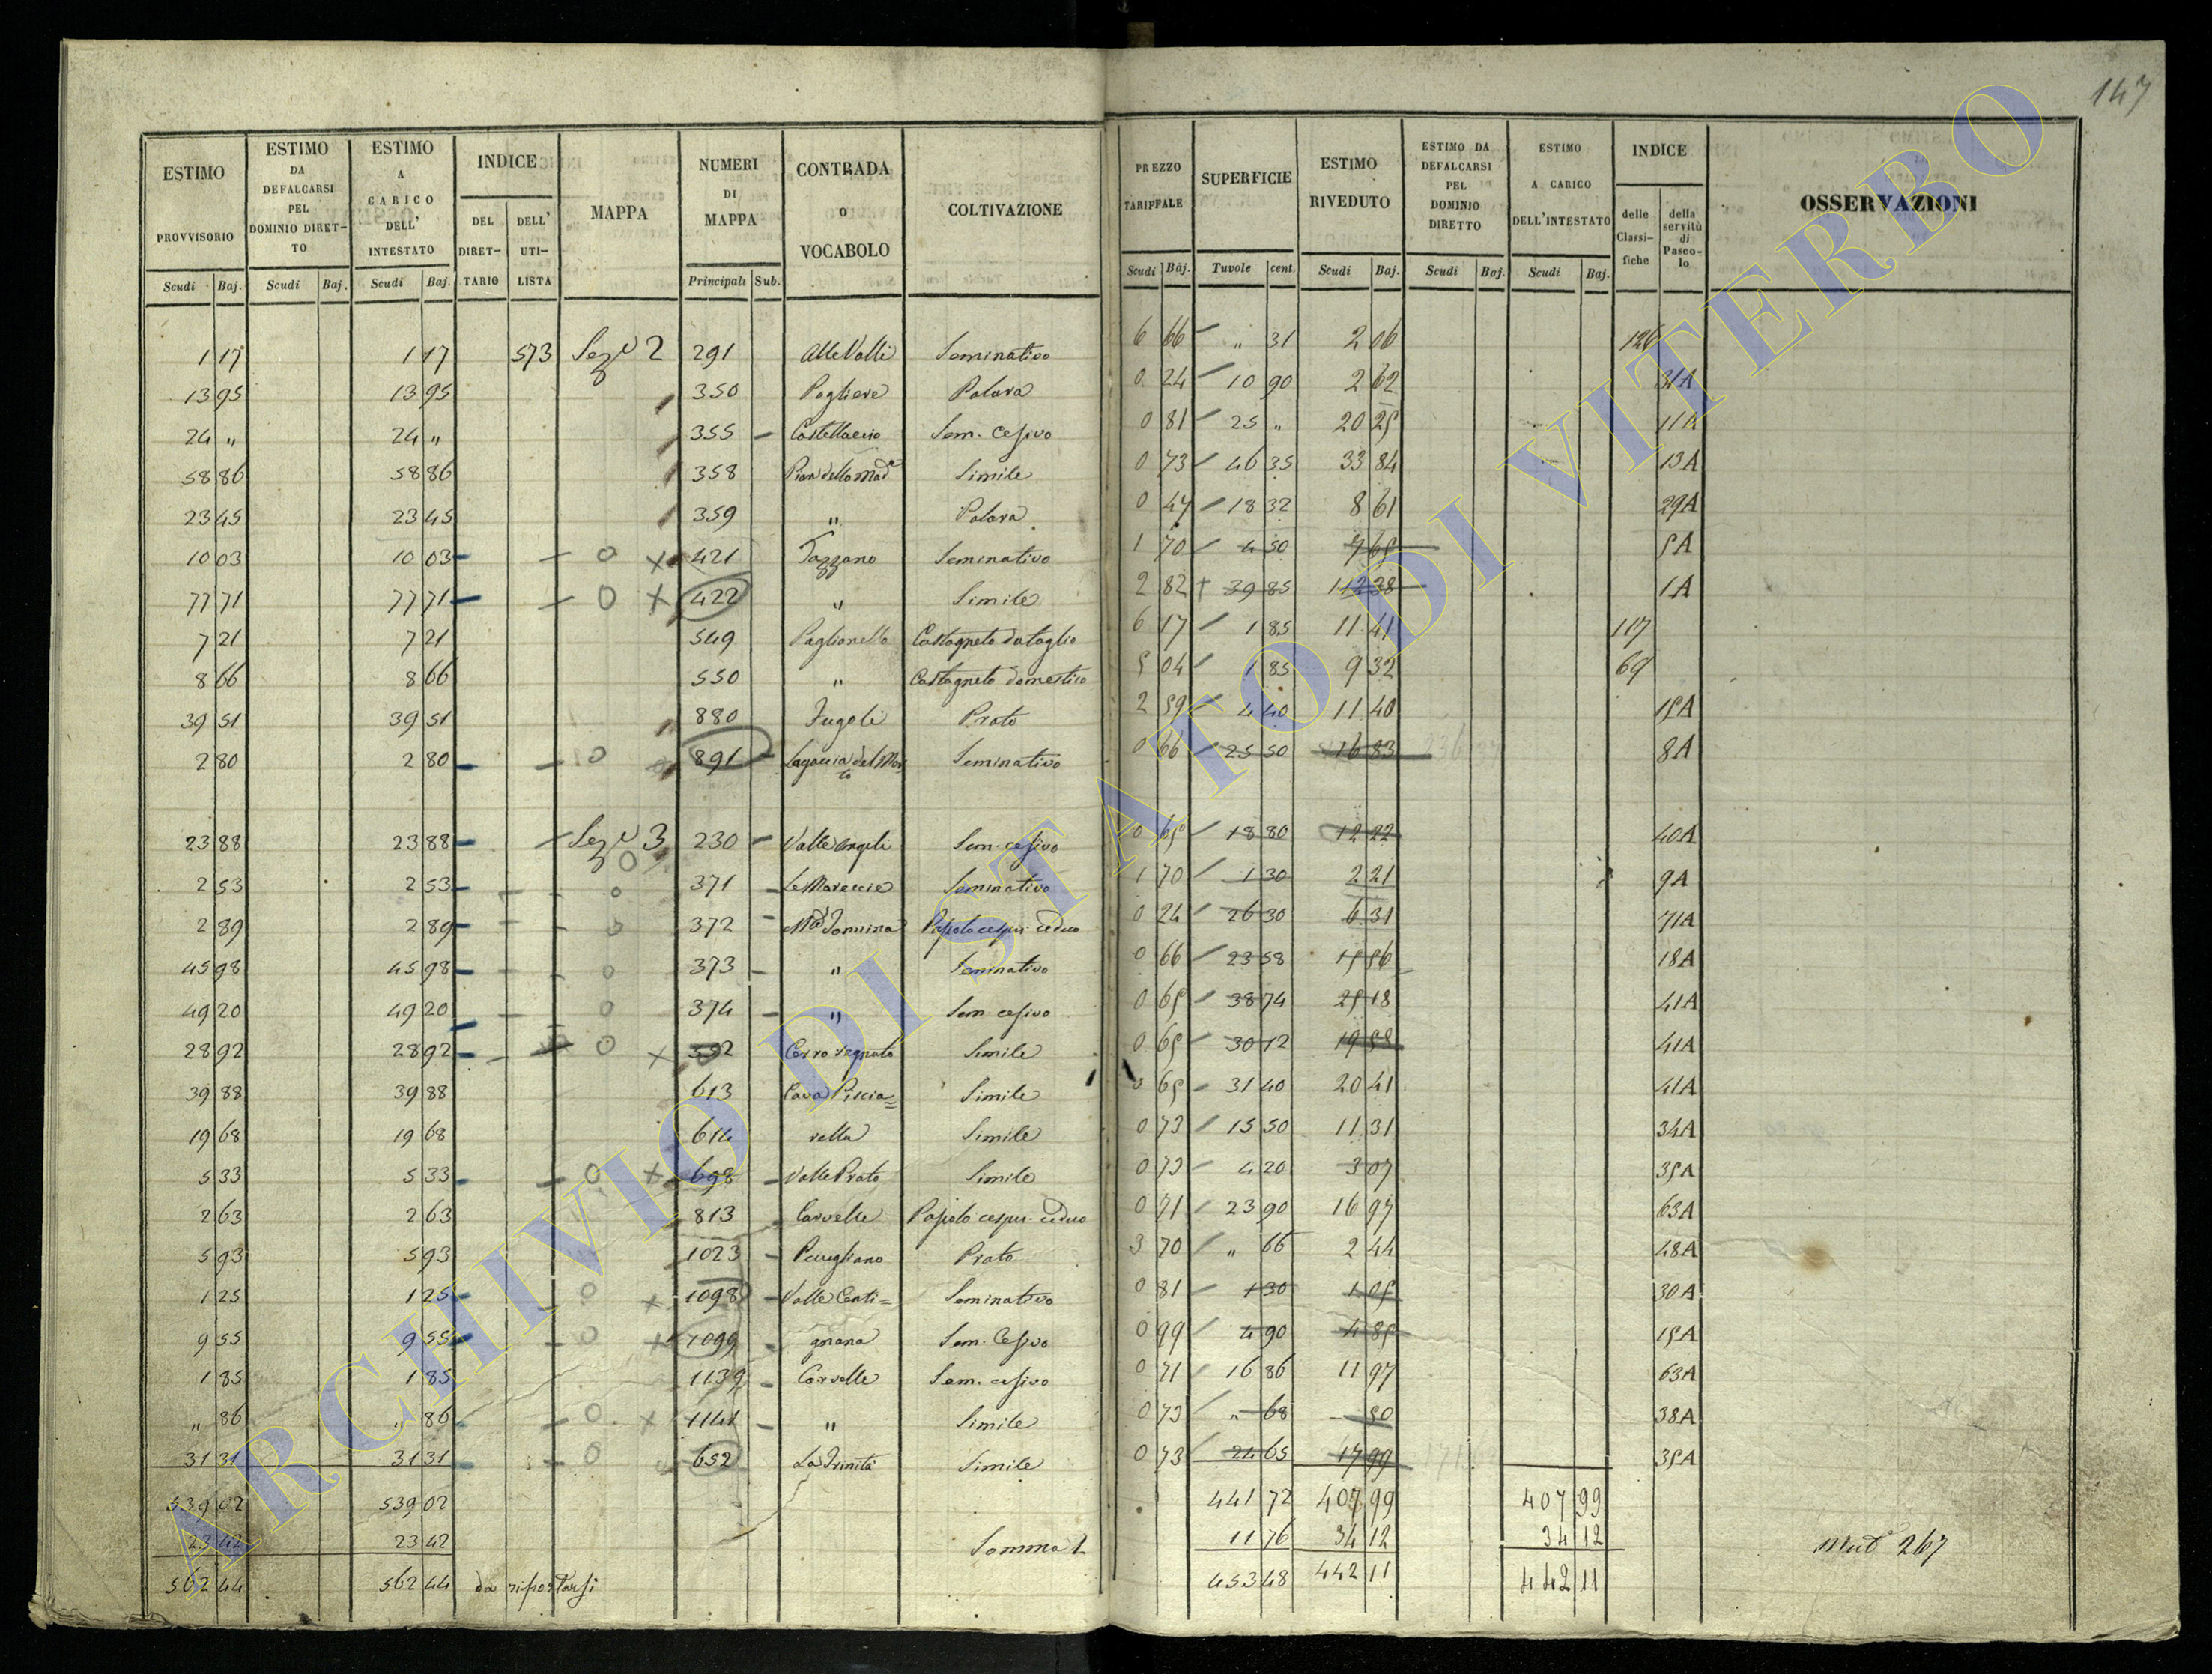 147
ESTIMO PROVVISORIO Scudi Baj.
ESTIMO DA DEFALCARSI PEL DOMINIO DIRETTO Scudi Baj.
ESTIMO A CARICO DELL' INTESTATO Scudi Baj.
INDICE DEL DIRETTARIO DELL' UTILISTA
MAPPA
NUMERI DI MAPPA Principali Sub.
CONTRADA o VOCABOLO
COLTIVAZIONE
PREZZO TARIFFALE Scudi Baj.
SUPERFICIE Tavole cent.
ESTIMO RIVEDUTO Scudi Baj.
ESTIMO DA DEFALCARSI PEL DOMINIO DIRETTO Scudi Baj.
ESTIMO A CARICO DELL'INTESTATO Scudi Baj.
INDICE delle Classifiche della servitù di Pascolo
OSSERVAZIONI
1 17 1 17 573 Sez. 2 291 Alle Valli Seminativo 6 66 " 31 2 06 126
13 95 13 95 350 Pagliere Palara 0 24 10 90 2 62
24 " 24 " 355 Castellaccio Sem. Cesivo 0 81 25 " 20 25 11A
58 86 58 86 358 Pian della Mad.a Simile 0 73 46 35 33 84 13A
23 45 23 45 359 " Palara 0 47 18 32 8 61 29A
10 03 10 03 O X 421 Tazzano Seminativo 1 70 4 50 7 65 5A
77 71 77 71 O X 422 " Simile 2 82 39 85 112 38 1A
7 21 7 21 549 Paglianella Castagneto da taglio 6 17 1 85 11 41 117
8 66 8 66 550 " Castagneto domestico 5 04 1 85 9 32 69
39 51 39 51 880 Fugoli Prato 2 59 4 40 11 40 15A
2 80 2 80 O 891 Seminativo 0 66 25 50 16 83 8A
23 88 23 88 Sez. 3 230 Valle Sem. cesivo 0 65 18 80 12 22 40A
2 53 2 53 O 371 Le Mareccie Seminativo 1 70 1 30 2 21 9A
2 89 2 89 O 372 Pascolo cespu. ceduo 0 24 26 30 6 31 71A
45 98 45 98 O 373 " Seminativo 0 66 23 58 15 56 18A
49 20 49 20 O 374 " Sem. cesivo 0 65 38 74 25 18 41A
28 92 28 92 O X 552 Simile 0 65 30 12 19 58 41A
39 88 39 88 613 Cava Piscia= Simile 0 65 31 40 20 41 41A
19 68 19 68 614 rella Simile 0 73 15 50 11 31 34A
5 33 5 33 O X 698 Valle Prato Simile 0 73 4 20 3 07 35A
2 63 2 63 813 Carvelle Pascolo cespu. ceduo 0 71 23 90 16 97 63A
5 93 5 93 1023 Perugliano Prato 3 70 " 66 2 44 48A
1 25 1 25 O X 1098 Valle Conti= Seminativo 0 81 1 30 1 05 30A
9 55 9 55 O X 1099 gnana Sem. Cesivo 0 99 4 90 4 85 15A
1 85 1 85 1139 Carvelle Sem. cesivo 0 71 16 86 11 97 63A
" 86 " 86 O X 1141 " Simile 0 73 " 68 50 38A
31 31 31 31 O 652 La Trinità Simile 0 73 24 65 17 99 35A
539 02 539 02 441 72 407 99 407 99
23 42 23 42 Somma 11 76 34 12 34 12 Mut. 267
562 44 562 44 da riportarsi 453 48 442 11 442 11
ARCHIVIO DI STATO DI VITERBO